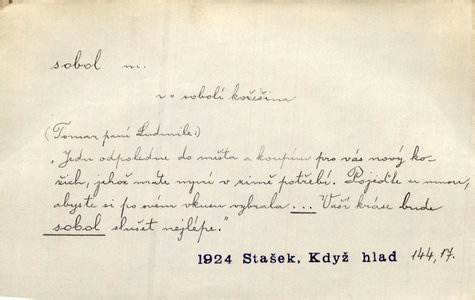 sobol m.
v = sobolí kožešina
(Tomar paní Ludmile:)
„Jedu odpoledne do města a koupím pro vás nový ko-
žich, jehož máte nyní v zimě potřebí. Pojeďte se mnou,
abyste si po svém vkusu vybrala ... Vaší kráse bude
sobol slušet nejlépe."
1924 Stašek, Když hlad 144,17.